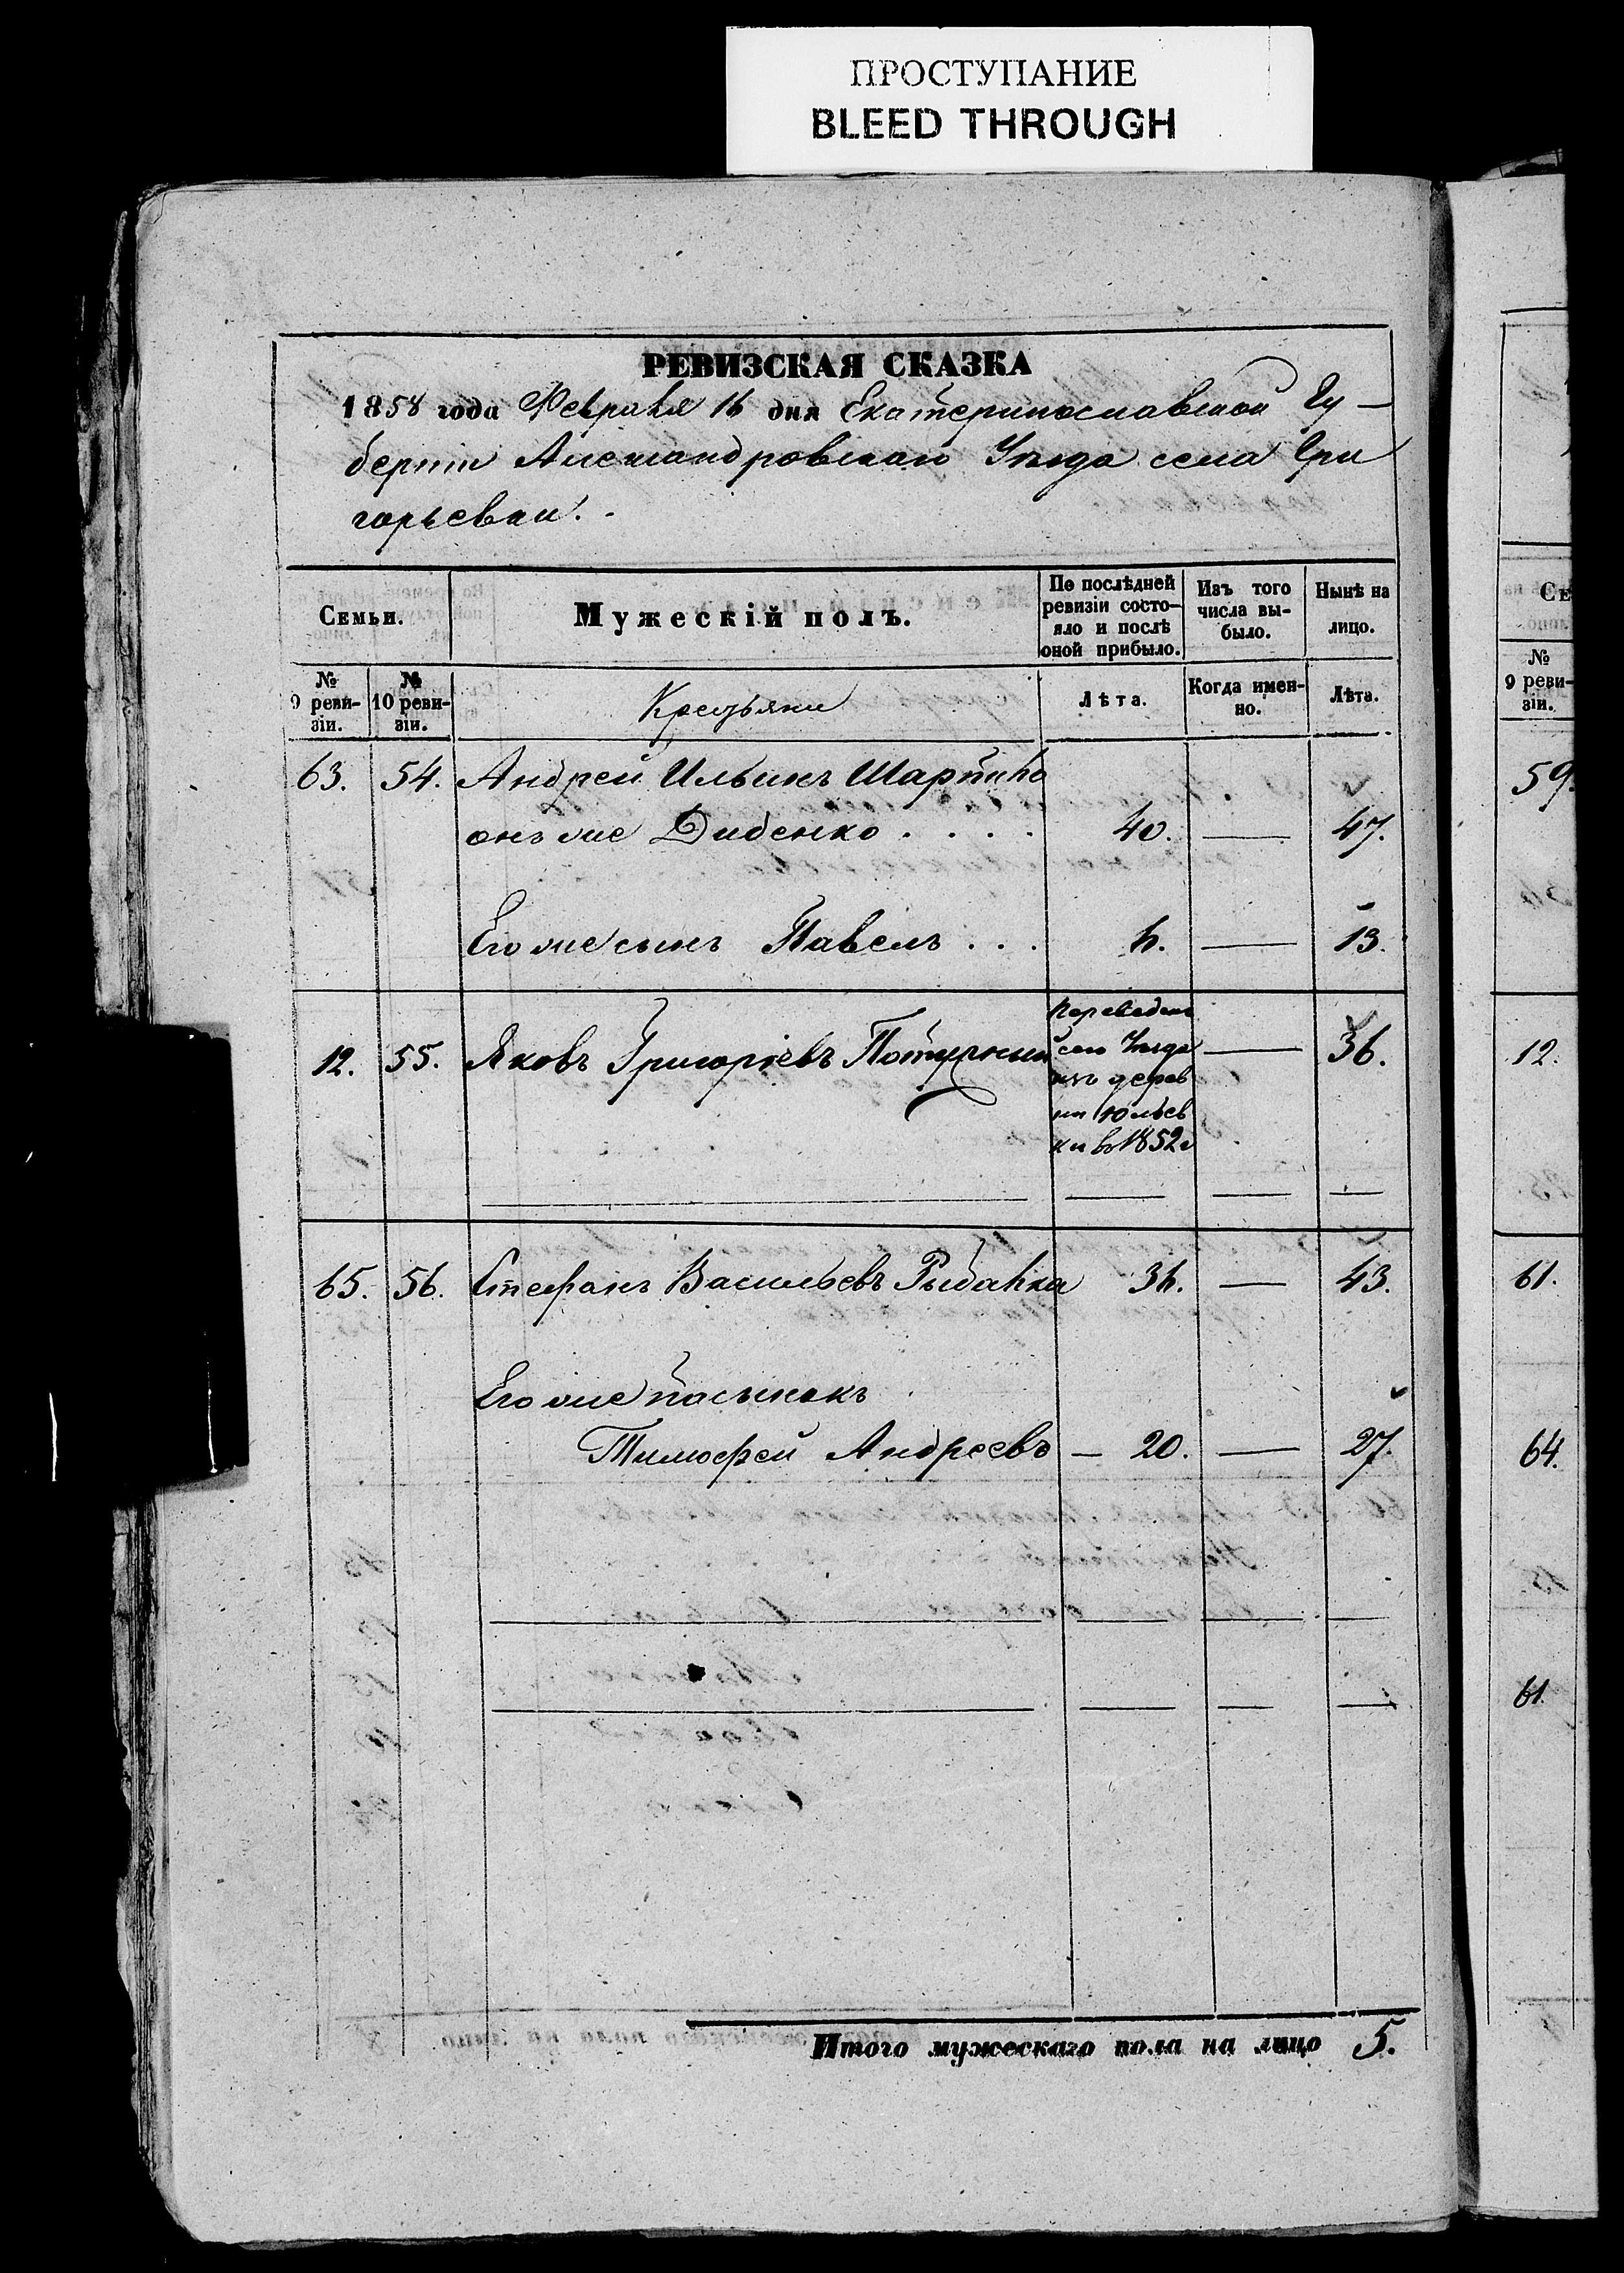 ПРОСТУПАНИЕ
BLEED THROUGH
РЕВИЗСКАЯ СКАЗКА
1858 года Февраля 16 дня Екатеринославской Гу-
берніи Александровскаго Уѣзда села Гри
горьевки.
Семьи.
Мужескій полъ.
По послѣдней ревизіи состо-яло и послѣ оной прибыло.
Изъ того числа вы-было.
Нынѣ на лицо.
№ 9 реви-зіи.
№ 10 реви-зіи.
Крестьяне
Лѣта.
Когда имен-но.
Лѣта.
63. 54. Андрей Ильинъ
онъ же Диденко . . . . 40. — 47.
Его же сынъ Павелъ . . . 6. — 13.
12. 55. Яковъ Григорьевъ — 36.
Переведенъ
сего Уѣзда
изъ дерев
ни Юльев
ки въ 1852 г
65. 56. Стефанъ Васильевъ Рыбалка 36. — 43.
Его же пасынокъ
Тимофей Андреевъ — 20. — 27.
Итого мужескаго пола на лицо 5.
Се
№
9 реви-
зіи.
59.
12.
61.
64.
61.